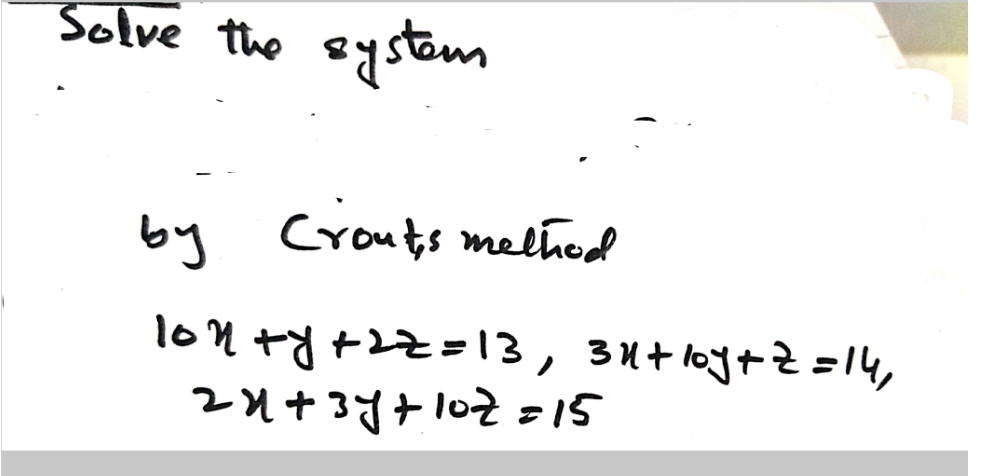 Solve the system
by Crout,s method
10x + y + 2z = 13, 3x + 10y + z = 14,
2x + 3y + 10z = 15